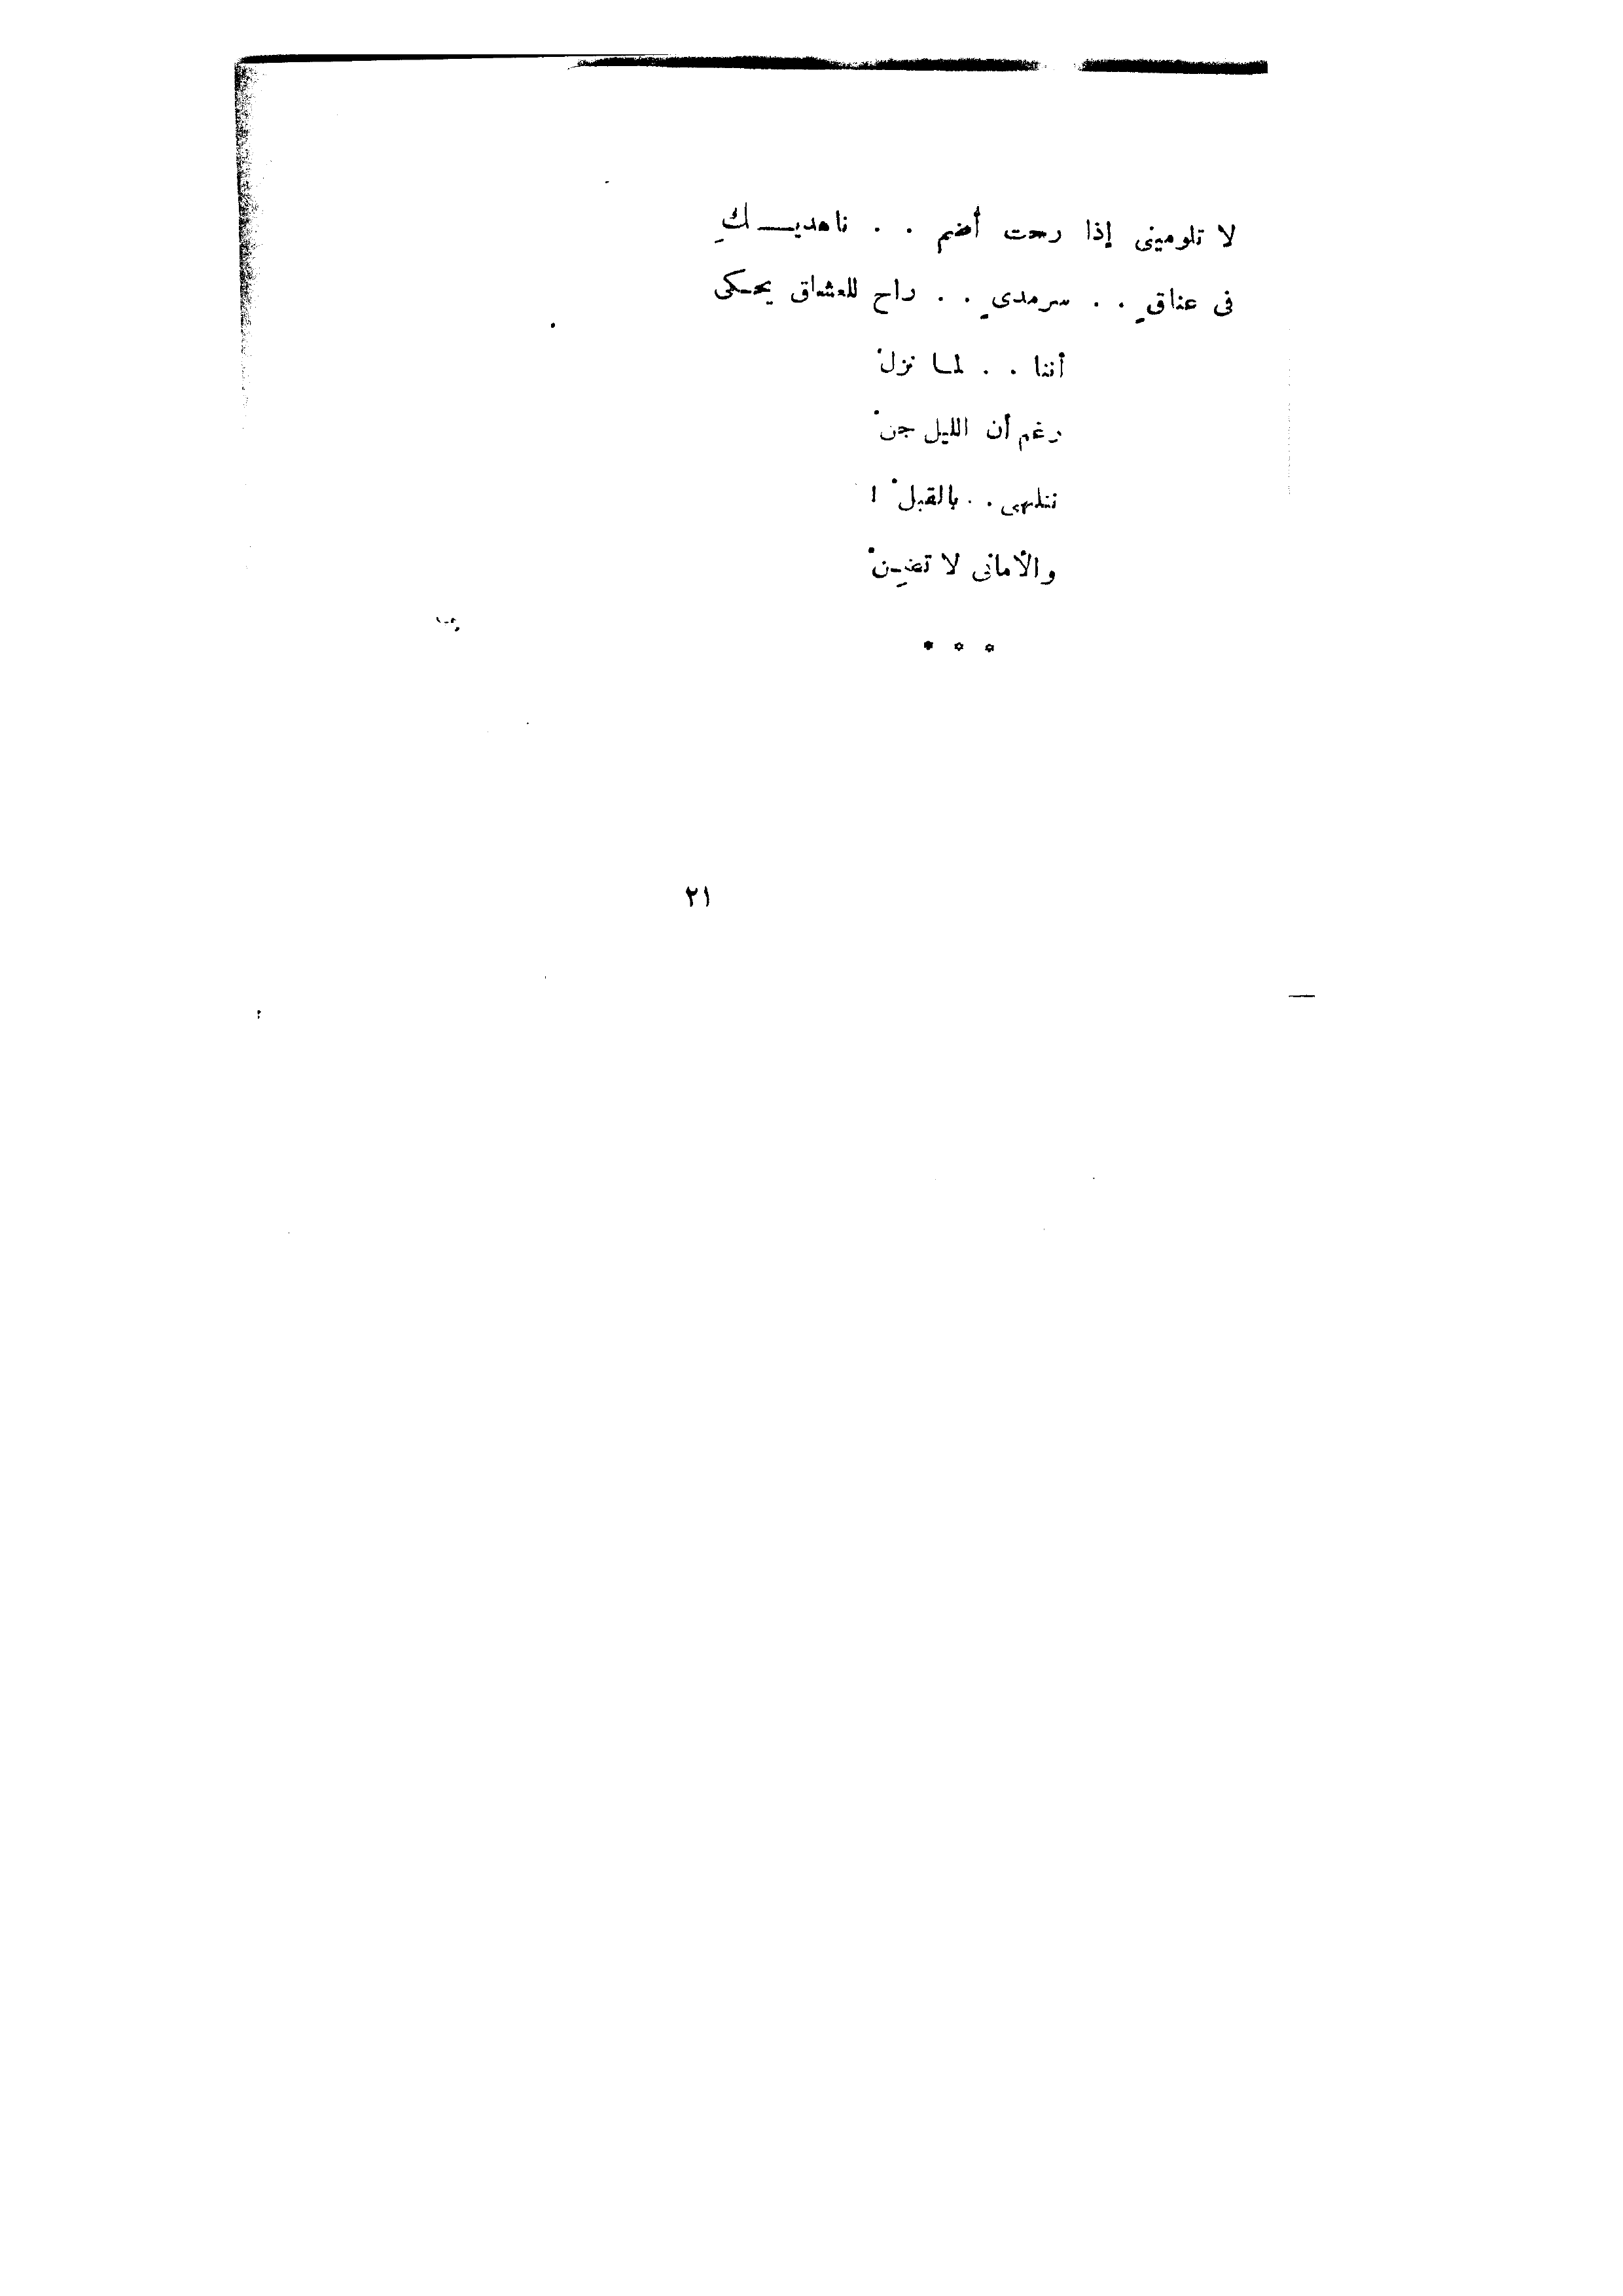 لا تلومينى إذا رحت أضم . . ناهديــكِ
فى عناقٍ . . سرمدىٍ . . راح للعشاق يحـكى
أننا . . لمـا نزلْ
رغم أن الليل جنْ
نتلهى . . بالقبلْ !
والأمانى لا تغيـنْ
* * *
٢١